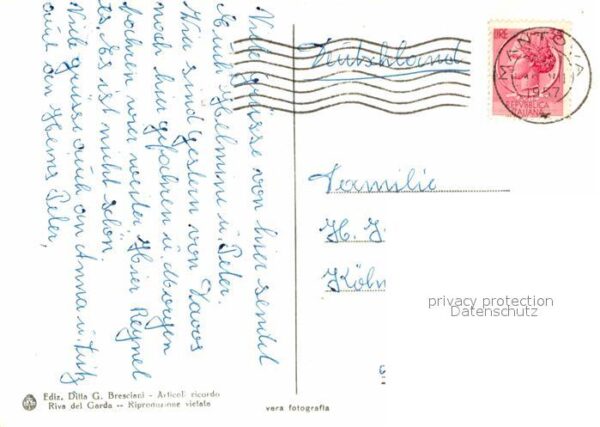 Viele Grüsse von hier sendet
Euch Helmine u. Peter.
Wir sind gestern von Davos
noch hier gefahren u. Morgen
fahren wir weiter. Hier Regnet
es. Es ist nicht schön.
Viele grüsse auch an Anna u. Fritz
und an Heinz Peter,
Deutschland
MANTOVA
1957
LIRE
REPVBBLICA
ITALIANA
Familie
H. J.
Köln
privacy protection
Datenschutz
Ediz. Ditta G. Bresciani - Articoli ricordo
Riva del Garda -- Riproduzione vietata
vera fotografia